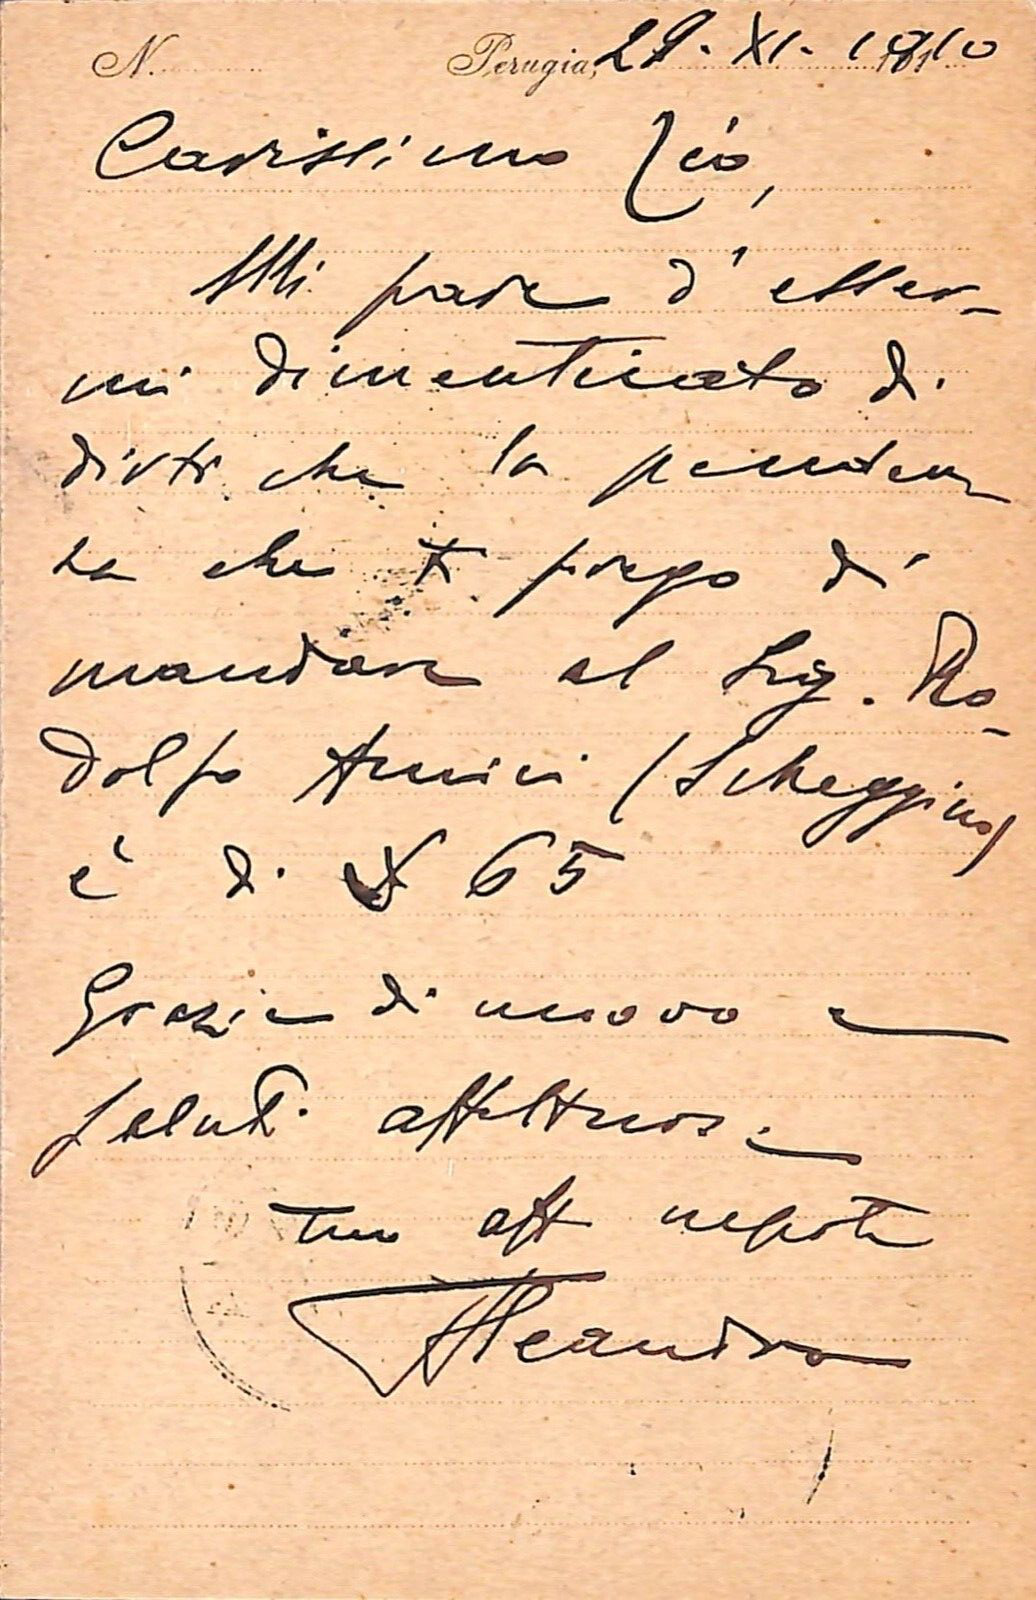 N. Perugia, 29. XI. 1910
Carissimo Zio,
Mi pare d'esser-
mi dimenticato di
dirti che la penden
za che ti prego di
mandare al Sig. Ro-
dolfo Amici (Scheggino)
è di £ 65
Grazie di nuovo e
saluti affettuosi
tuo aff nipote
Aleandro